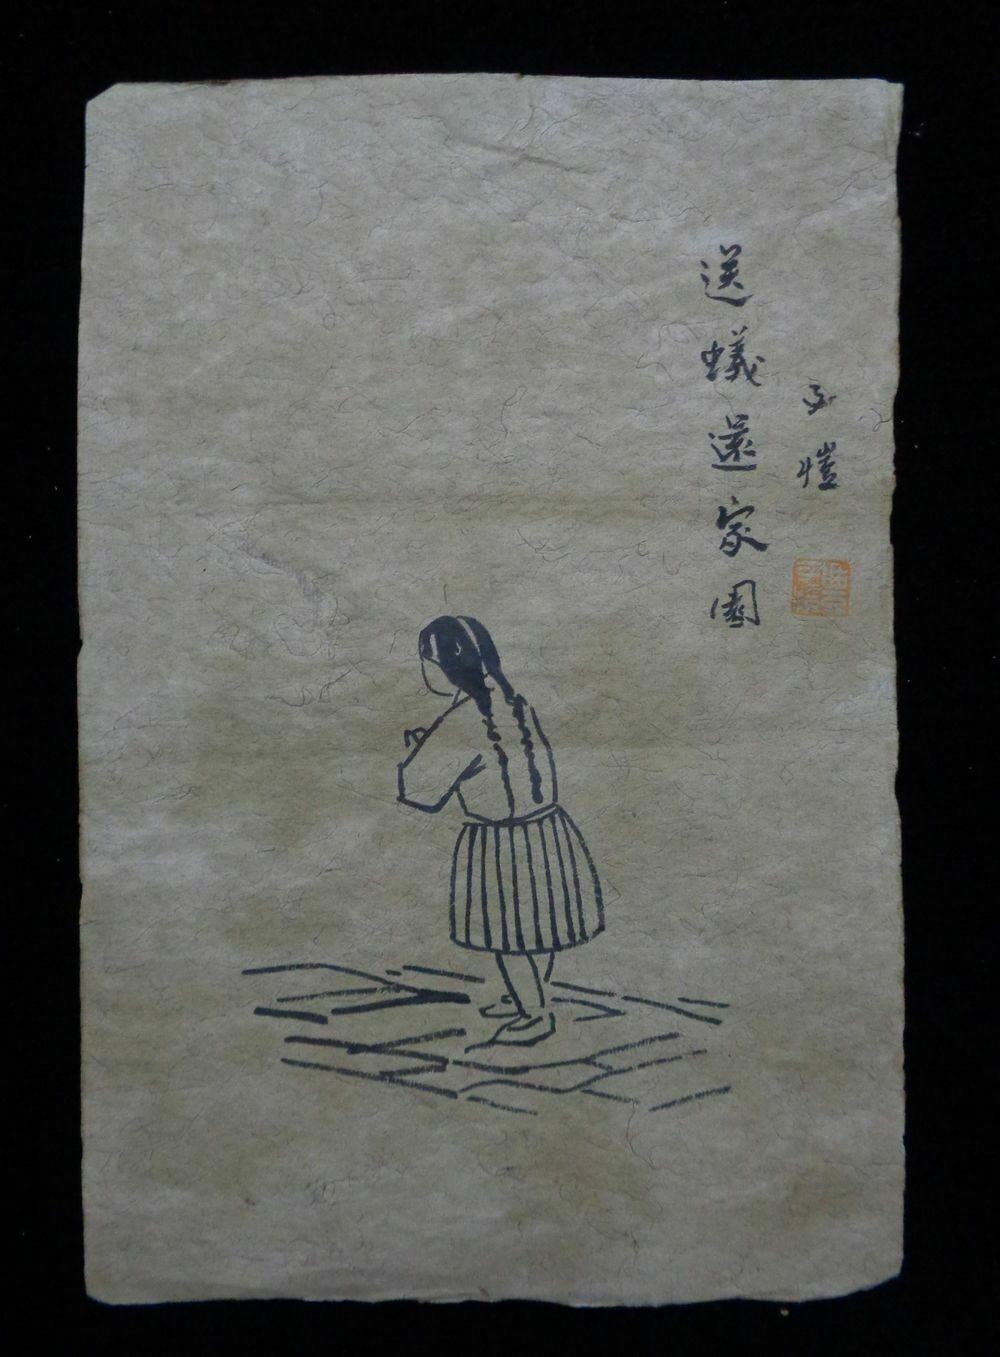 送蟻還家園
子愷